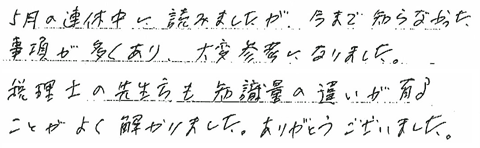 5月の連休中に読みましたが、今まで知らなかった
事項が多くあり、大変参考になりました。
税理士の先生方も知識量の違いが有る
ことがよく解かりました。ありがとうございました。